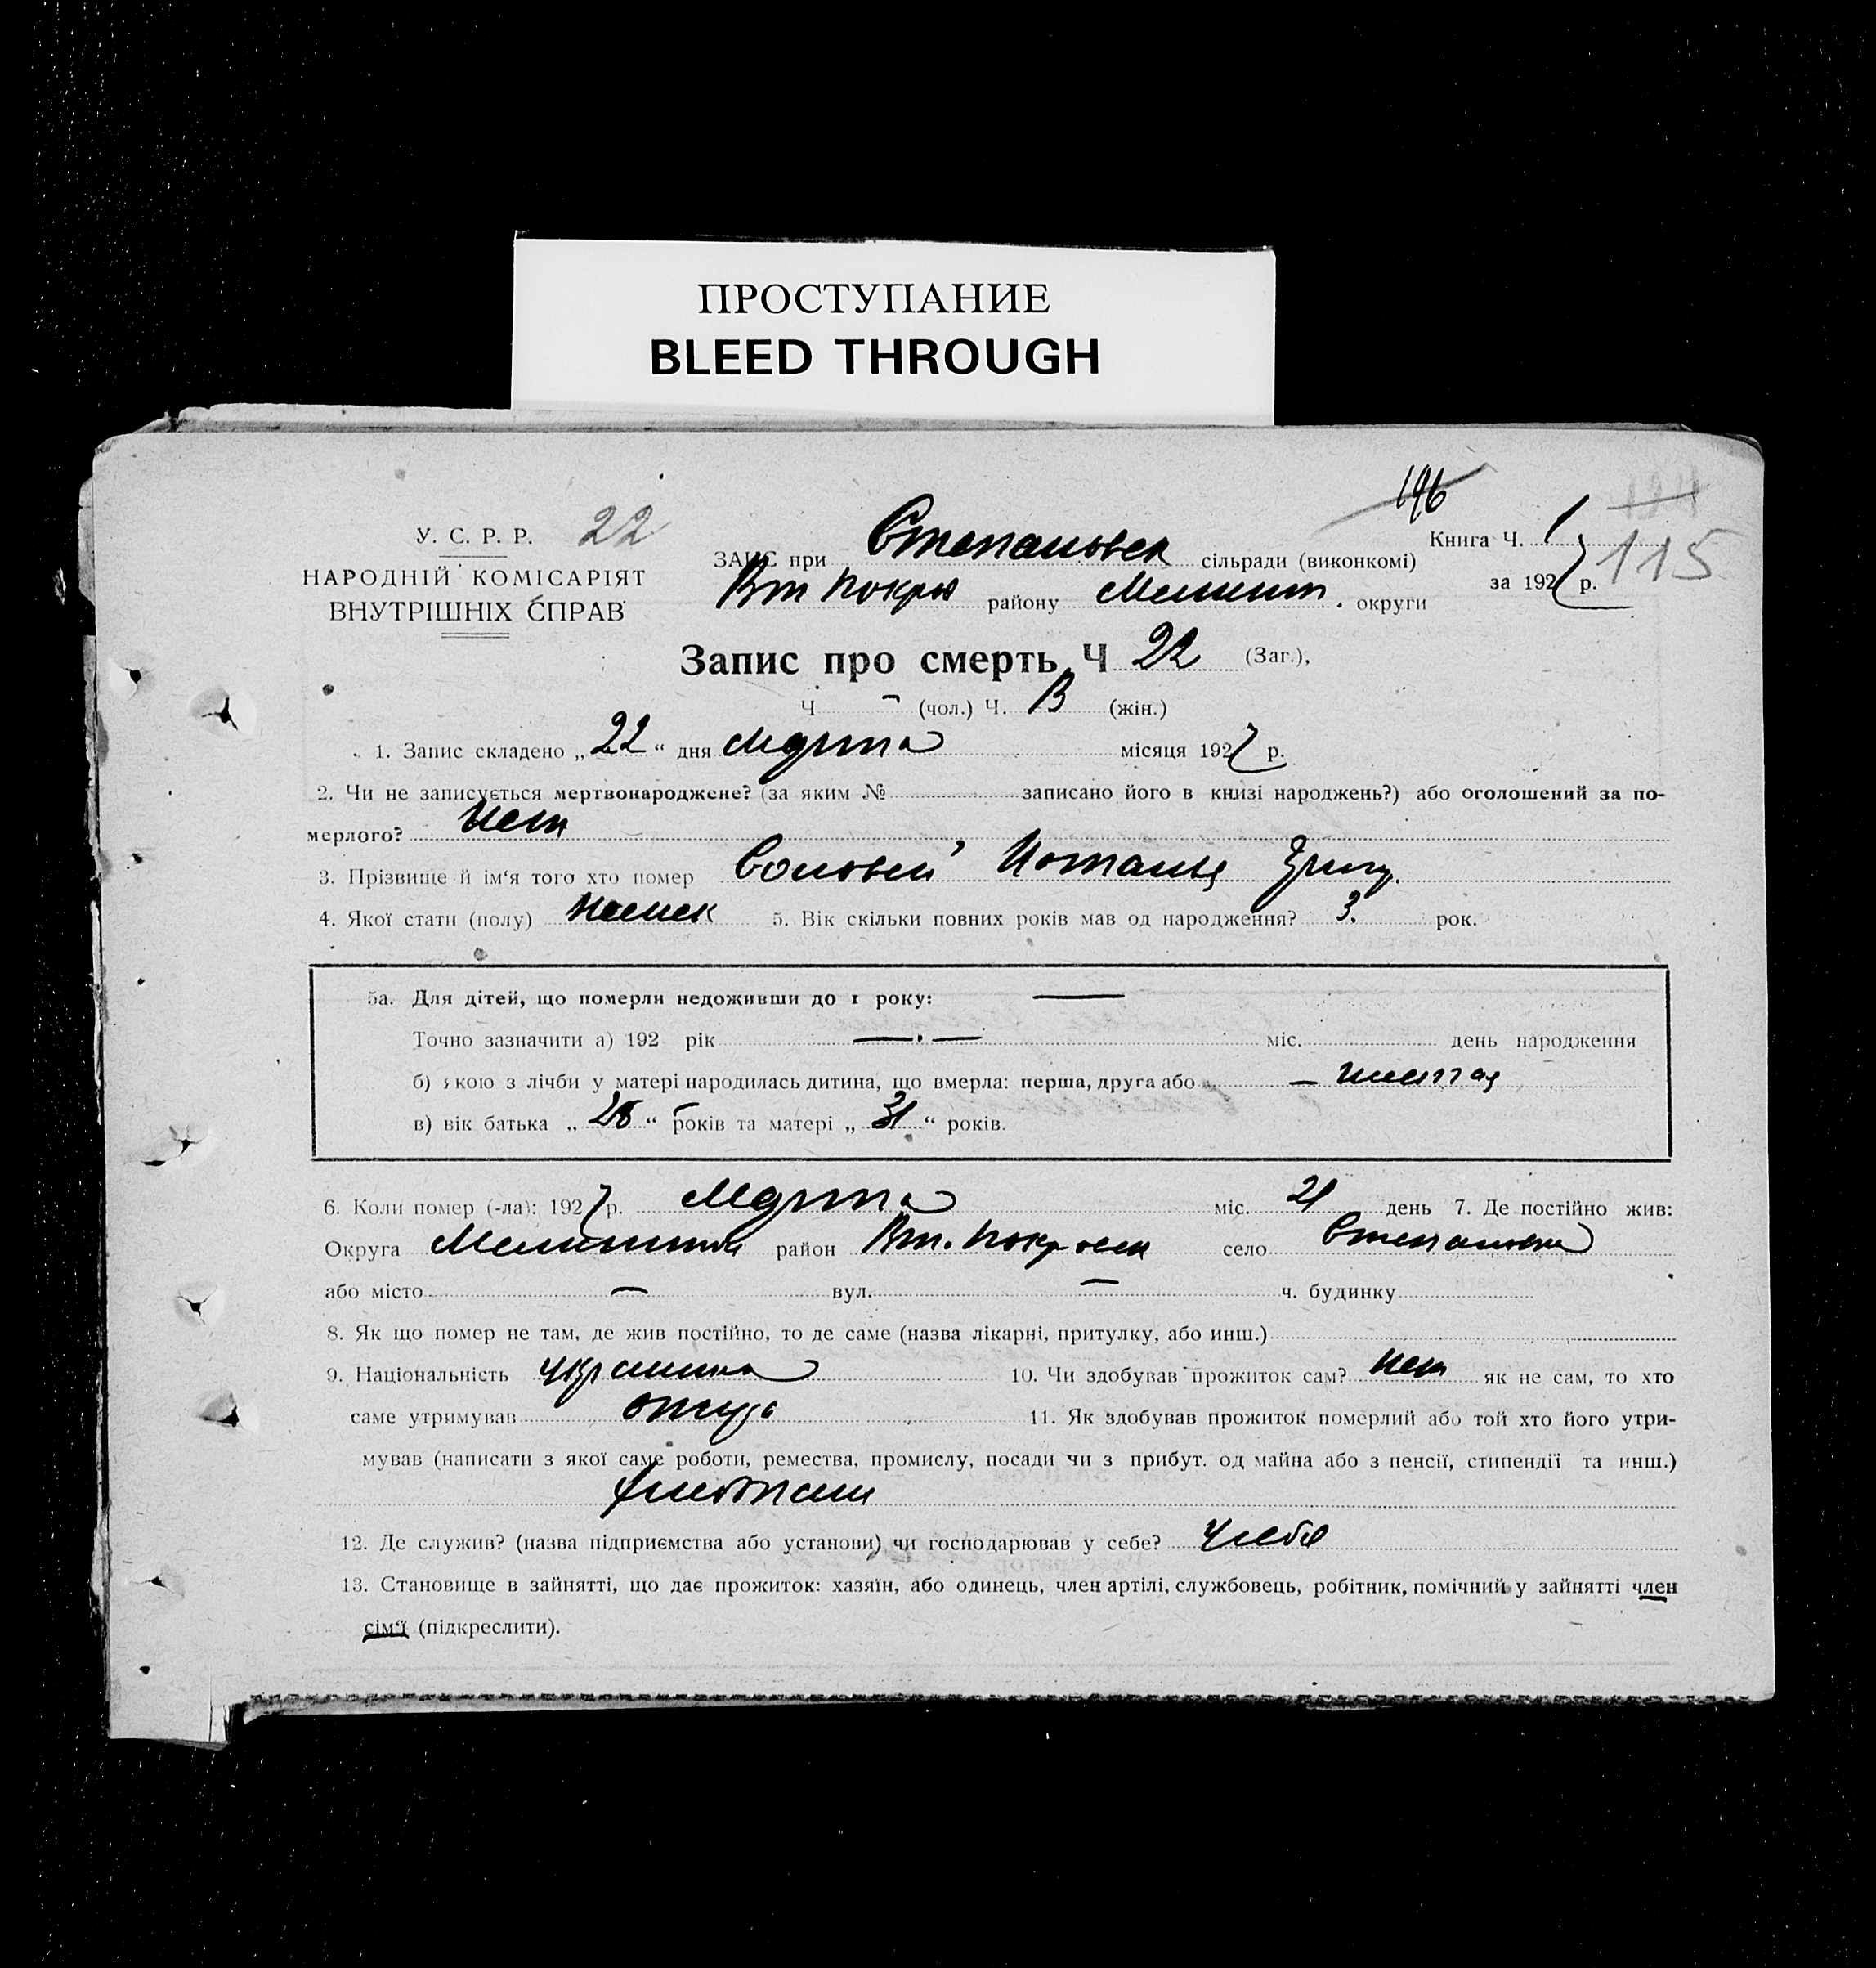 ПРОСТУПАНИЕ
BLEED THROUGH
196
У. С. Р. Р. 22
НАРОДНІЙ КОМІСАРІЯТ
ВНУТРІШНІХ СПРАВ
ЗАГС при Степановск сільради (виконкомі)
Вт Покров району Мелитоп. округи
Книга Ч. 1
за 1927 р. 115
Запис про смерть Ч 22 (Заг.),
Ч - (чол.) Ч. (жін.)
1. Запис складено „ 22 “ дня Марта місяця 1927 р.
2. Чи не записується мертвонароджене? (за яким № записано його в книзі народжень?) або оголошений за по-
мерлого? нет
3. Прізвище й ім‘я того хто помер Соловей
4. Якої стати (полу) женск 5. Вік скільки повних років мав од народження? 3. рок.
5а. Для дітей, що померли недоживши до 1 року: —
Точно зазначити а) 192 рік — . — міс. день народження
б) якою з лічби у матері народилась дитина, що вмерла: перша, друга або — шестая
в) вік батька „ “ років та матері „ 31 “ років.
6. Коли помер (-ла): 1927 р. Марта міс. 21 день 7. Де постійно жив:
Округа Мелитопол район Вт. Покровск село Степановка
або місто — вул. — ч. будинку
8. Як що помер не там, де жив постійно, то де саме (назва лікарні, притулку, або инш.)
9. Національність украинка 10. Чи здобував прожиток сам? нет як не сам, то хто
саме утримував отец 11. Як здобував прожиток померлий або той хто його утри-
мував (написати з якої саме роботи, ремества, промислу, посади чи з прибут. од майна або з пенсії, стипендії та инш.)
хлебопаш
12. Де служив? (назва підприємства або установи) чи господарював у себе? у себе
13. Становище в зайнятті, що дає прожиток: хазяїн, або одинець, член артілі, службовець, робітник, помічний у зайнятті член
сім‘ї (підкреслити).